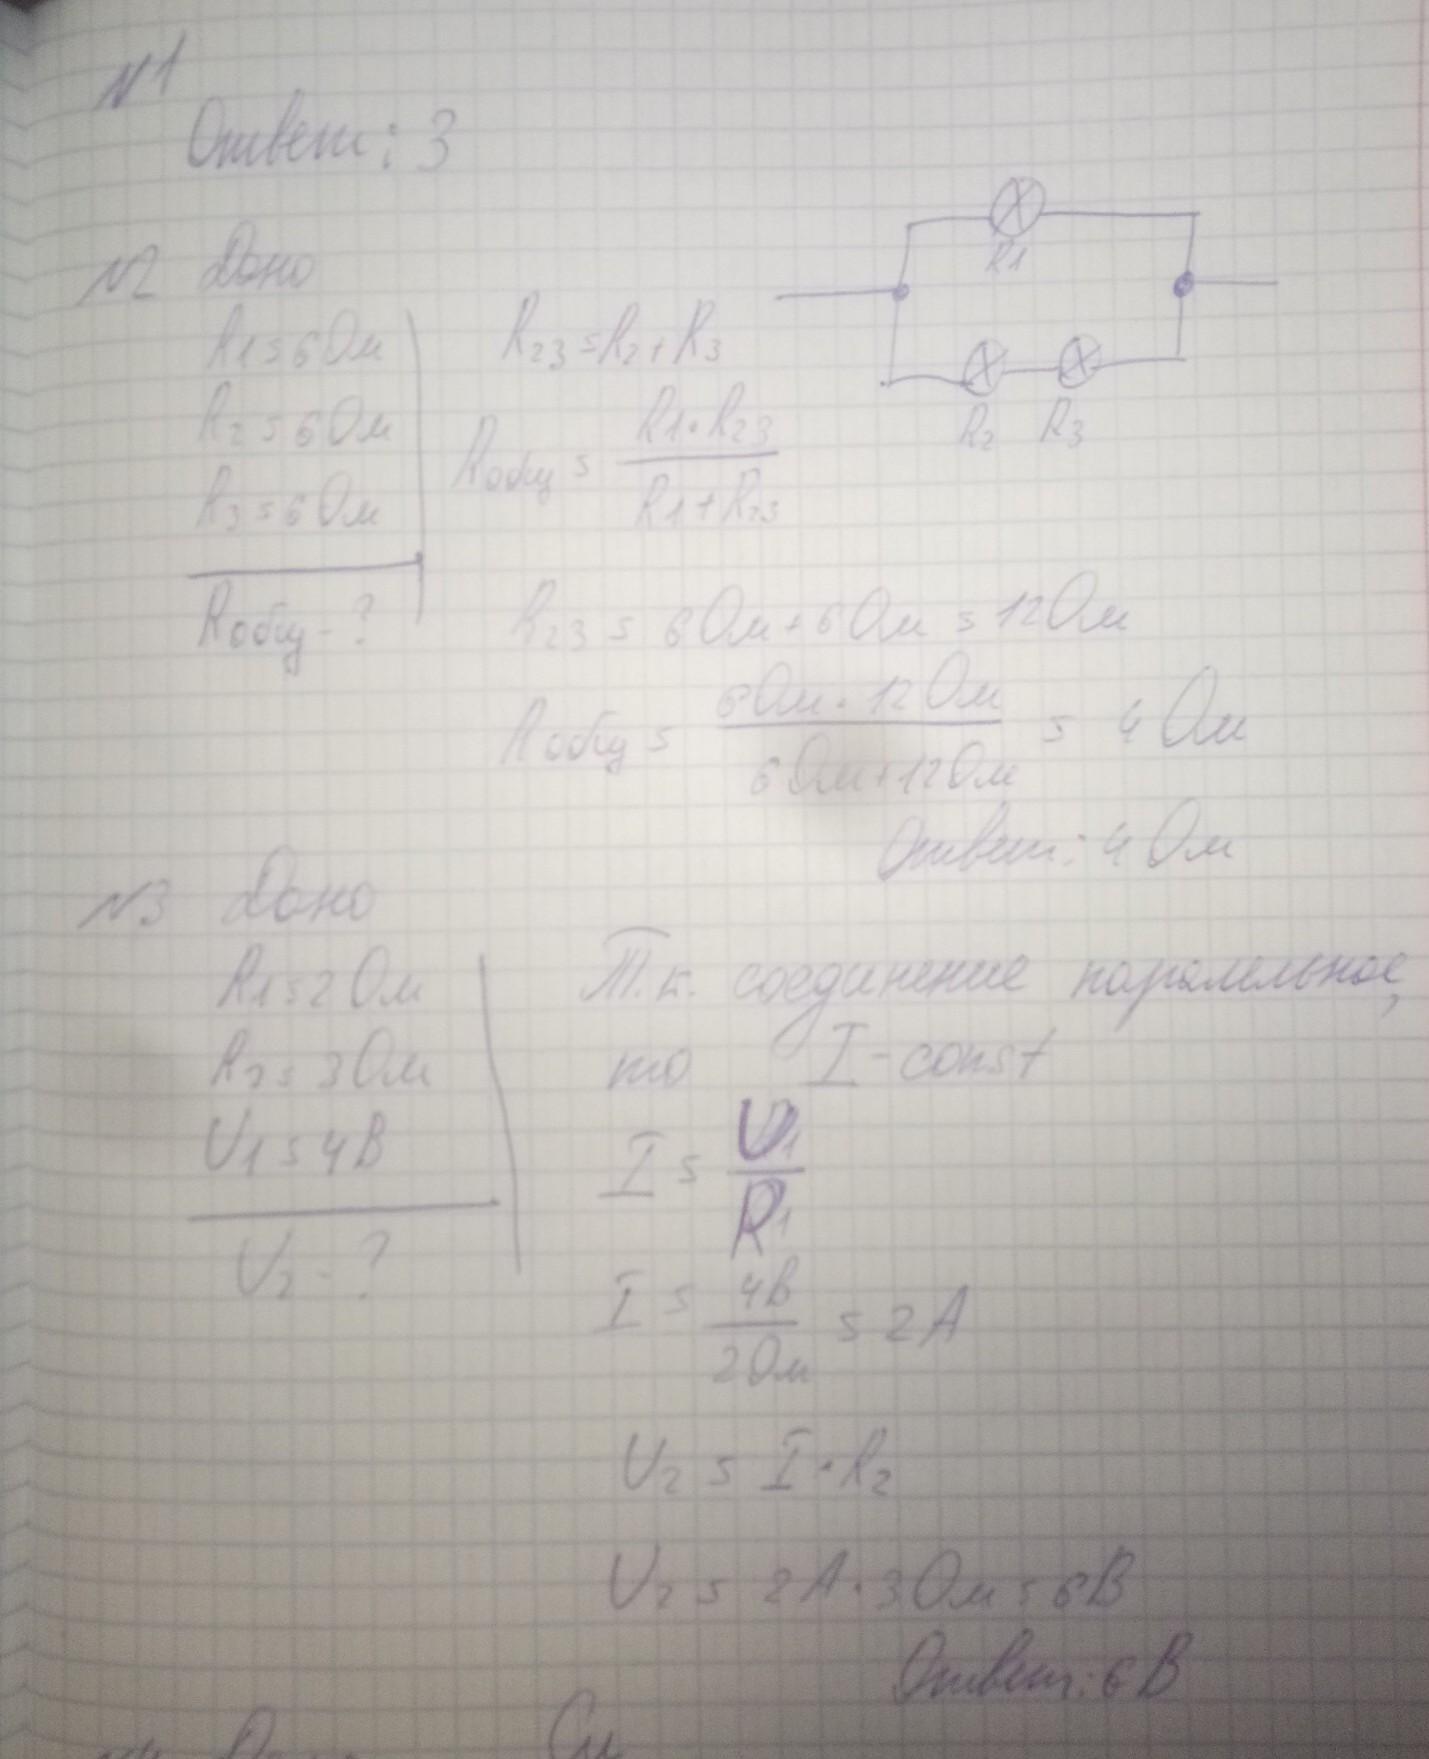 №1
Ответ: 3
№2 Дано
R1 = 6 Ом
R2 = 6 Ом
R3 = 6 Ом
Rобщ - ?
R23 = R2 + R3
Rобщ = R1 · R23 / R1 + R23
R1
R2 R3
R23 = 6 Ом + 6 Ом = 12 Ом
Rобщ = 6 Ом · 12 Ом / 6 Ом + 12 Ом = 4 Ом
Ответ: 4 Ом
№3 Дано
R1 = 2 Ом
R2 = 3 Ом
U1 = 4 В
U2 - ?
Т.к. соединение паралельное,
то I - const
I = U1 / R1
I = 4В / 2 Ом = 2 А
U2 = I · R2
U2 = 2А · 3 Ом = 6 В
Ответ: 6 В